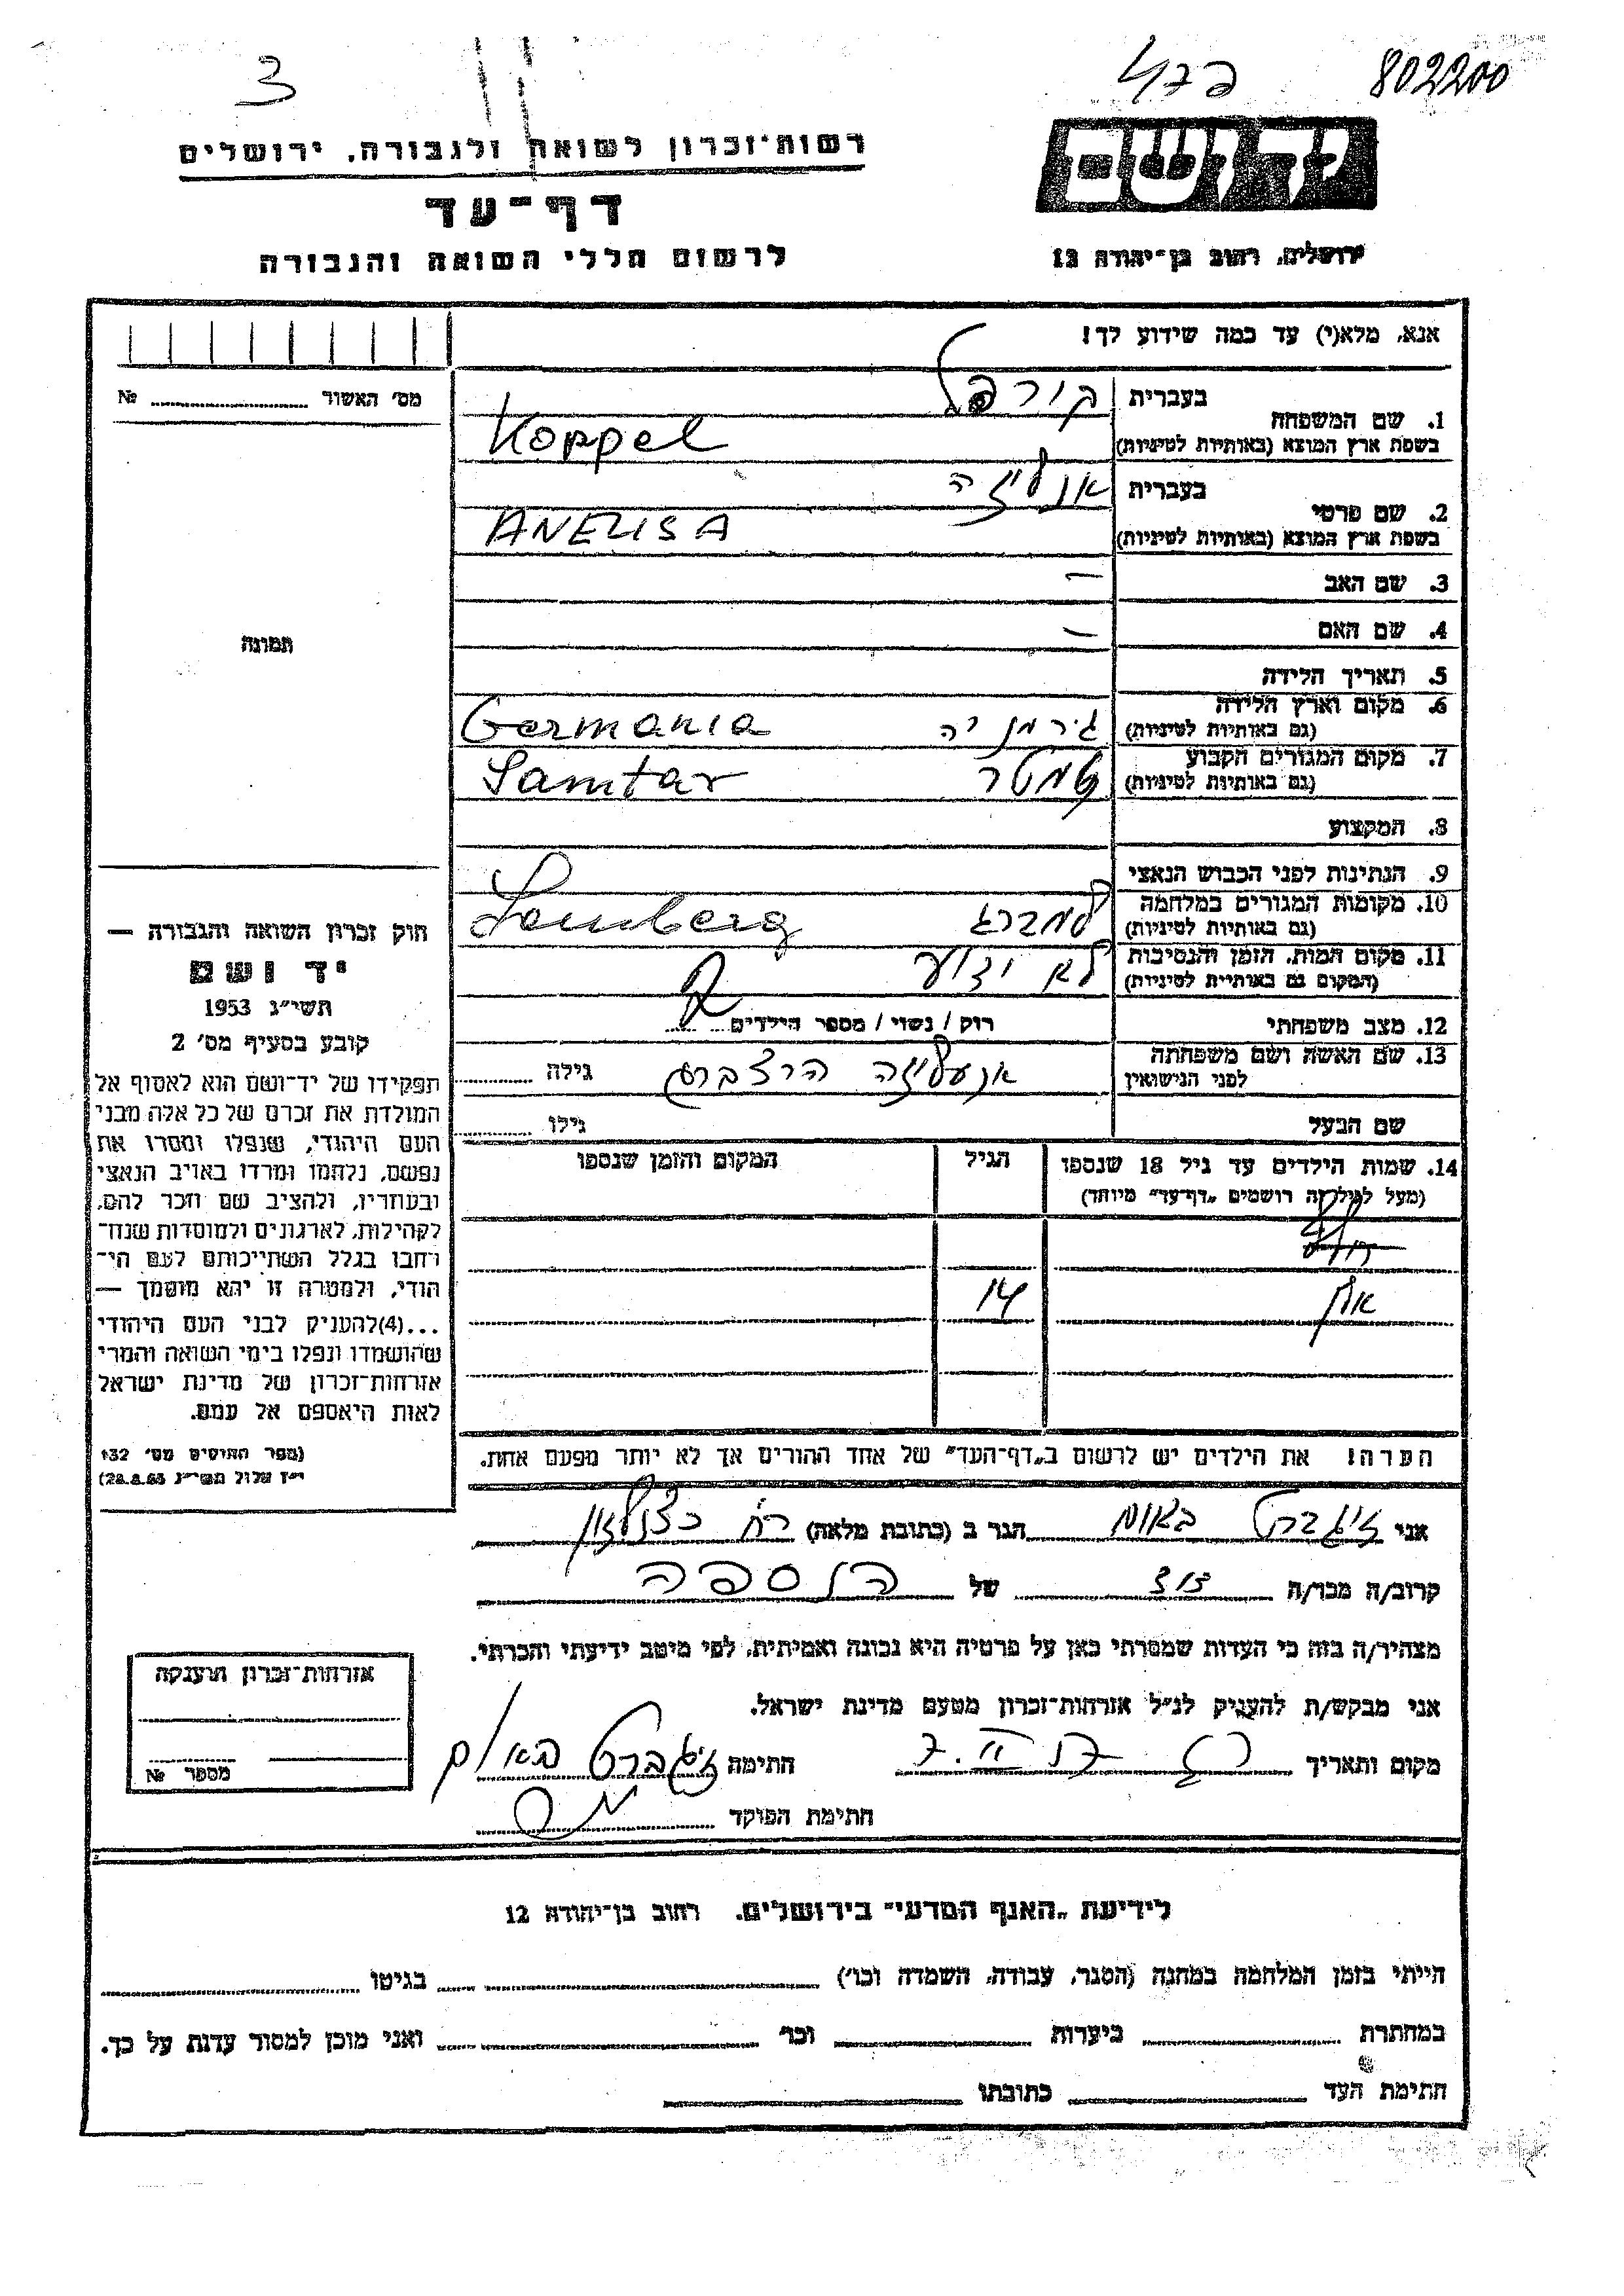 3
802200
רשות־זכרון לשואה ולגבורה, ירושלים
יד ושם
דף־עד
לרשום חללי השואה והגבורה
ירושלים, רחוב בן־יהודה 12
אנא, מלא(י) עד כמה שידוע לך!
מס׳ האשור № 
1. שם המשפחה
בעברית
בשפת ארץ המוצא (באותיות לטיניות)
Koppel
2. שם פרטי
בעברית אנליזה
בשפת ארץ המוצא (באותיות לטיניות)
ANELISA
3. שם האב —
4. שם האם —
תמונה
5. תאריך הלידה
6. מקום וארץ הלידה
(גם באותיות לטיניות) גירמניה Germania
7. מקום המגורים הקבוע
(גם באותיות לטיניות) Samtar
8. המקצוע
9. הנתינות לפני הכבוש הנאצי
10. מקומות המגורים במלחמה
(גם באותיות לטיניות) למברג Lemberg
11. מקום המות, הזמן והנסיבות
(המקום גם באותיות לטיניות) לא ידוע
12. מצב משפחתי רוק / נשוי / מספר הילדים
13. שם האשה ושם משפחתה
לפני הנישואין אנעליזה הרצברג גילה
שם הבעל גילו
14. שמות הילדים עד גיל 18 שנספו הגיל המקום והזמן שנספו
(מעל לגיל זה רושמים „דף־עד״ מיוחד)
14
הערה! את הילדים יש לרשום ב„דף־העד״ של אחד ההורים אך לא יותר מפעם אחת.
חוק זכרון השואה והגבורה —
יד ושם
תשי״ג 1953
קובע בסעיף מס׳ 2
תפקידו של יד־ושם הוא לאסוף אל
המולדת את זכרם של כל אלה מבני
העם היהודי, שנפלו ומסרו את
נפשם, נלחמו ומרדו באויב הנאצי
ובעוזריו, ולהציב שם וזכר להם,
לקהילות, לארגונים ולמוסדות שנח־
רבו בגלל השתייכותם לעם הי־
הודי, ולמטרה זו יהא מוסמך —
...(4)להעניק לבני העם היהודי
שהושמדו ונפלו בימי השואה והמרי
אזרחות־זכרון של מדינת ישראל
לאות היאספם אל עמם.
(ספר החוקים מס׳ 132
י״ז אלול תשי״ג 28.8.53)
אני זיגברט באום הגר ב (כתובת מלאה) רח׳ כצנלזון
קרוב/ה מכר/ה דוד של הנספה
מצהיר/ה בזה כי העדות שמסרתי כאן על פרטיה היא נכונה ואמיתית, לפי מיטב ידיעתי והכרתי.
אני מבקש/ת להעניק לנ״ל אזרחות־זכרון מטעם מדינת ישראל.
מקום ותאריך חתימה זיגברט באום
חתימת הפוקד
אזרחות־זכרון הוענקה
מספר №
לידיעת „האגף המדעי״ בירושלים, רחוב בן־יהודה 12
הייתי בזמן המלחמה במחנה (הסגר, עבודה, השמדה וכו׳) בגיטו
במחתרת ביערות וכו׳ ואני מוכן למסור עדות על כך.
חתימת העד כתובתו